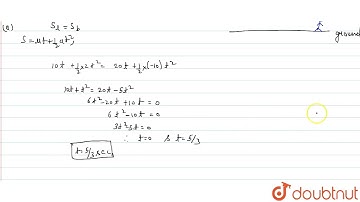 (a) Sₗ = Sb
S = ut + ½ at²,
ground
10t + ½×2t² = 20t + ½×(-10)t²
10t + t² = 20t - 5t²
6t² - 20t + 10t = 0
6t² - 10t = 0
3t² - 5t = 0
∴ t=0 & t=5/3
t=5/3 sec
doubtnut